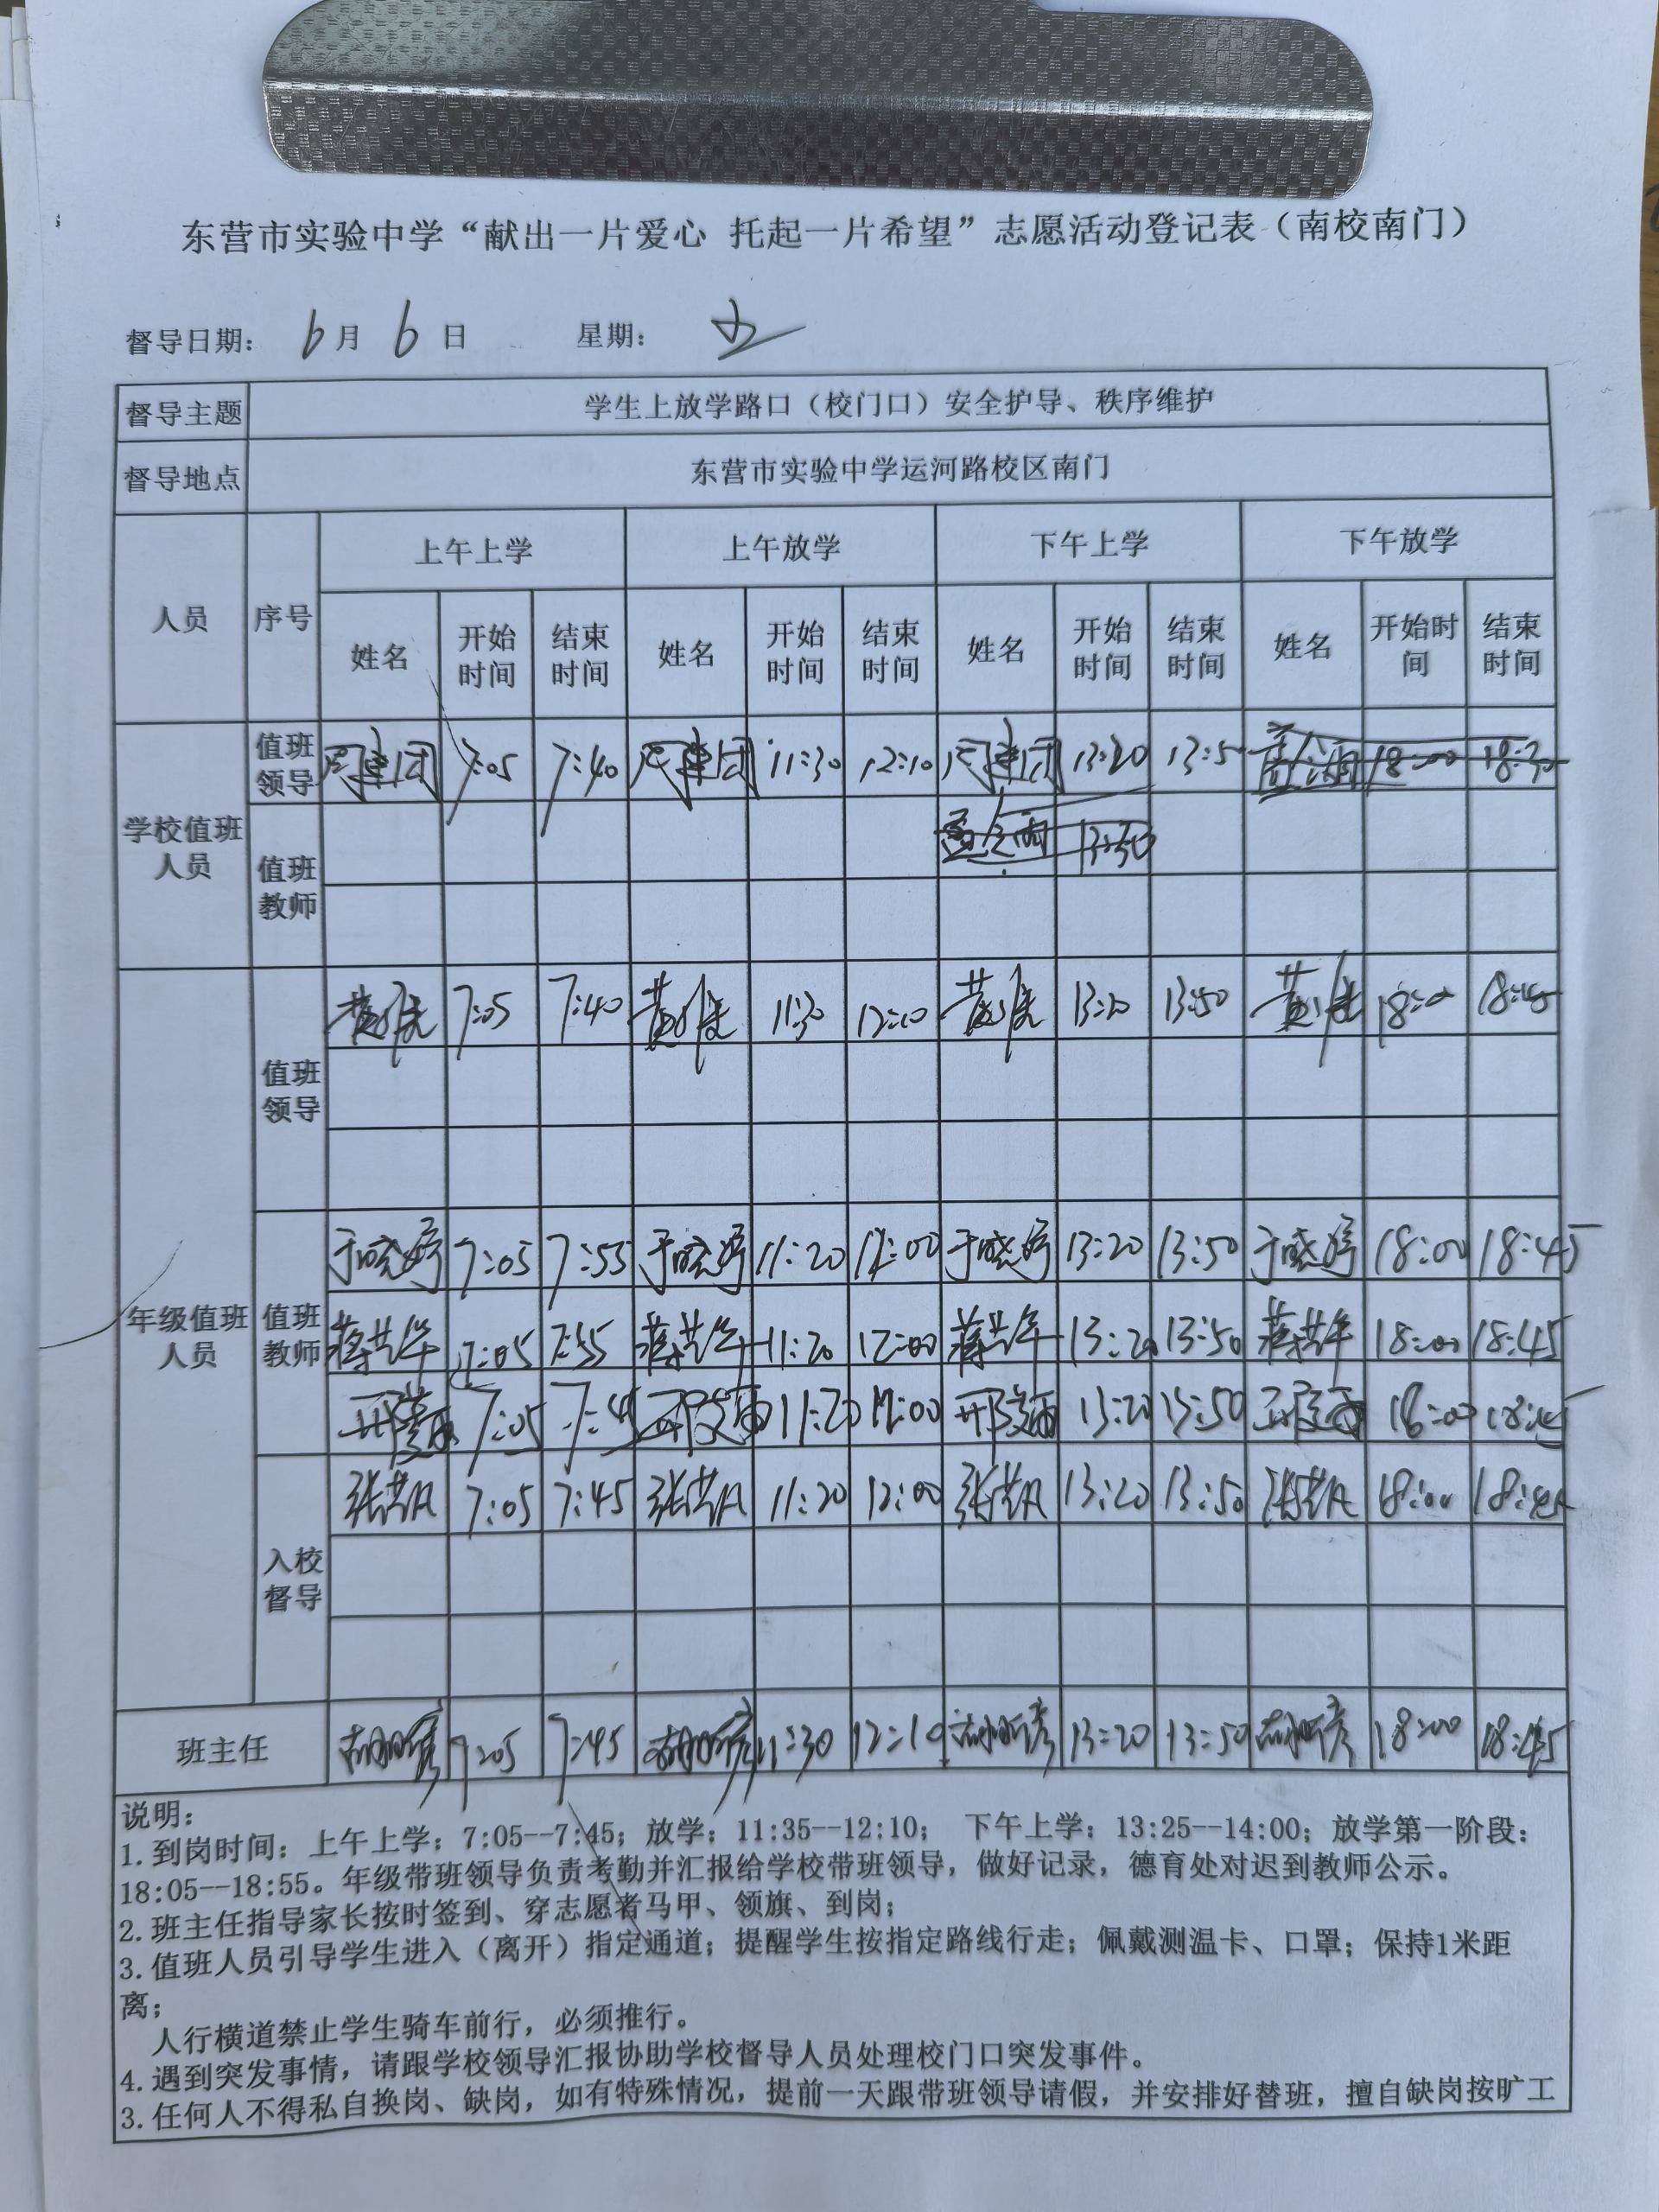 东营市实验中学“献出一片爱心 托起一片希望”志愿活动登记表（南校南门）
督导日期: 6月6日 星期: 五
督导主题 学生上放学路口（校门口）安全护导、秩序维护
督导地点 东营市实验中学运河路校区南门
人员 序号 上午上学 上午放学 下午上学 下午放学
姓名 开始时间 结束时间 姓名 开始时间 结束时间 姓名 开始时间 结束时间 姓名 开始时间 结束时间
学校值班人员
值班领导 周建国 7:05 7:40 周建国 11:30 12:10 周建国 13:20 13:5 18:00 18:30
值班教师 13:50
年级值班人员
值班领导 7:05 7:40 11:30 12:10 13:20 13:50 18:00 18:45
值班教师
于晓婷 7:05 7:55 于晓婷 11:20 12:00 于晓婷 13:20 13:50 于晓婷 18:00 18:45
7:05 7:55 11:20 12:00 13:20 13:50 18:00 18:45
7:05 7:45 11:20 12:00 13:20 13:50 18:00 18:45
入校督导 7:05 7:45 11:20 12:00 13:20 13:50 18:00 18:45
班主任 7:05 7:45 11:30 12:10 13:20 13:50 18:00 18:45
说明:
1.到岗时间: 上午上学; 7:05--7:45; 放学; 11:35--12:10; 下午上学; 13:25--14:00; 放学第一阶段:
18:05--18:55。年级带班领导负责考勤并汇报给学校带班领导，做好记录，德育处对迟到教师公示。
2.班主任指导家长按时签到、穿志愿者马甲、领旗、到岗;
3.值班人员引导学生进入（离开）指定通道; 提醒学生按指定路线行走; 佩戴测温卡、口罩; 保持1米距
离;
人行横道禁止学生骑车前行，必须推行。
4.遇到突发事情，请跟学校领导汇报协助学校督导人员处理校门口突发事件。
3.任何人不得私自换岗、缺岗，如有特殊情况，提前一天跟带班领导请假，并安排好替班，擅自缺岗按旷工